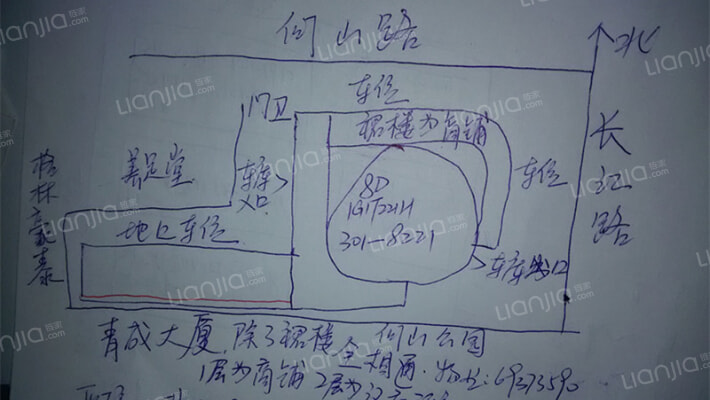 何山路
北
车位
门卫
裙楼为商铺
长江路
格林豪泰
美足堂
车库入口
车位
8D
301—8221
地上车位
车库出口
青成大厦.除了裙楼全
何山公园
1层为商铺 2层为
相通.